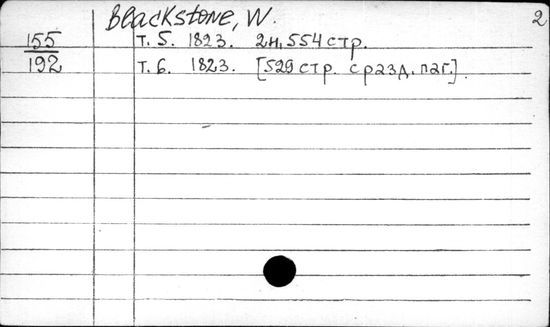 Blackstone, W.
2
155 т. 5. 1823. 2н, 554 стр.
192 т. 6. 1823. [529 стр. с разд. паг.].